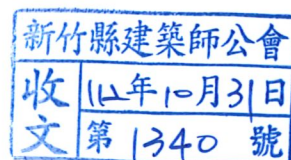 新竹縣建築師公會
收文
112年10月31日
第1340號